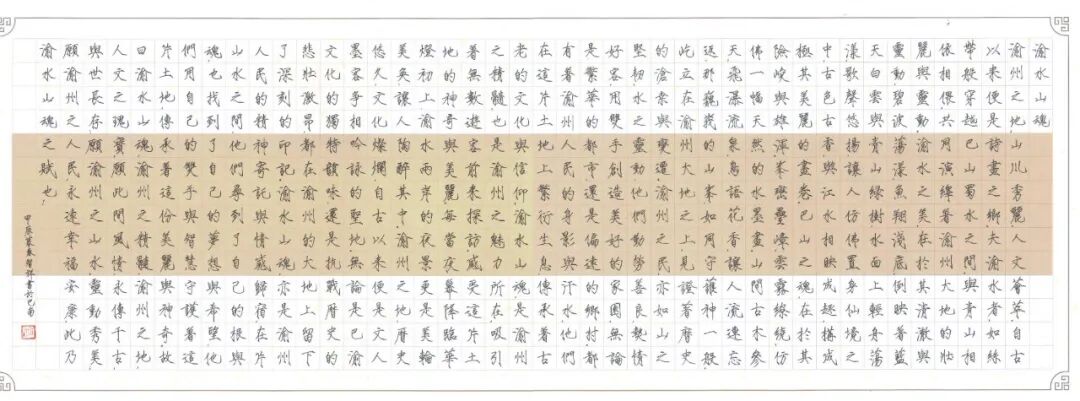 渝水山魂
渝州之地,山川秀麗,人文薈萃,自古
以來便是詩畫之鄉,夫渝水者,如絲
帶般穿越巴山蜀水之間,與青山相
依相偎,共同演繹着大的壯
麗與靈動,渝水之美,在於其清澈與
靈動,碧波蕩漾,魚翔淺底,倒映着藍
天白雲,青山綠樹,水面上輕舟蕩
漾,歌聲悠揚,讓人仿佛置身仙境之
中,古色古香,與江水相映成趣,構成
極其美的畫卷,巴山之魂,在於其
險峻與雄渾,峯巒疊嶂,雲霧繚繞,仿
佛一幅天然的水墨畫,山間古木參
天,飛瀑流泉,鳥語花香,讓人流連忘
返,那巍峨的山峯,如同守護神一般,
屹立在渝州大地之上,見證着曆史
的滄桑與變遷,渝州之民,亦如山之
堅,水之靈動,他們勤勞善良,熱情
好客,用雙手創造美好家園,無論
是繁華的都市,還是偏遠的鄉村,都
有着渝州人民的身影與汗水,他們
在這片土地上繁衍生息,傳承着古
老的文化與信仰,渝水山魂,是渝州
之精髓也,其魅力所在,吸引
着無數遊客前來探訪,感受這片土
地的神奇與美麗,每當夜幕降臨,華
燈初上,渝水兩岸的夜景更是美輪
美奐,讓人陶醉其中,渝州之地,曆史
悠久,文化燦爛,自古以來,便是文人
墨客爭相吟詠的聖地,無論是巴渝
文化的獨特韻味,還是抗戰曆史的
悲壯激昂,都在渝州的大地上留下
了深刻的印記,渝水山魂,亦是渝州
人民的精神寄託與情感歸宿,在片
山水之間,他們尋到了自己的根與
魂,也找到了自己的夢想與希望,他
們用自己的雙手與智慧,守護着這
片土地,傳承着這份美麗與神奇,故
曰,渝水山魂,渝州之精髓,渝州之地,
人文之魂寶,願此間風情,永傳千古,
與世長存,願渝州之山水,靈動秀美,
願渝州之人民,永遠幸福安康,此乃
渝水山魂之賦也!
甲辰歲春書於巴南